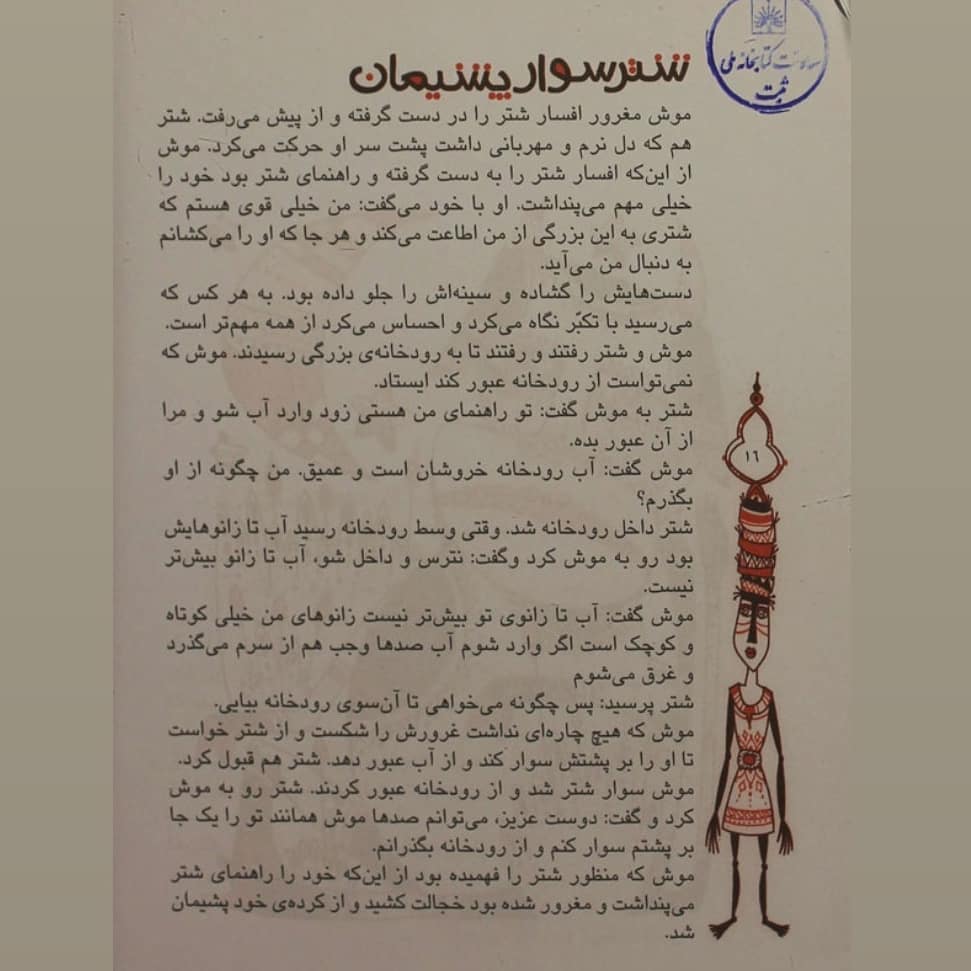 شترسوار پشیمان
موش مغرور افسار شتر را در دست گرفته و از پیش می‌رفت. شتر
هم که دل نرم و مهربانی داشت پشت سر او حرکت می‌کرد. موش
از این‌که افسار شتر را به دست گرفته و راهنمای شتر بود خود را
خیلی مهم می‌پنداشت. او با خود می‌گفت: من خیلی قوی هستم که
شتری به این بزرگی از من اطاعت می‌کند و هر جا که او را می‌کشانم
به دنبال من می‌آید.
دست‌هایش را گشاده و سینه‌اش را جلو داده بود. به هر کس که
می‌رسید با تکبّر نگاه می‌کرد و احساس می‌کرد از همه مهم‌تر است.
موش و شتر رفتند و رفتند تا به رودخانه‌ی بزرگی رسیدند. موش که
نمی‌تواست از رودخانه عبور کند ایستاد.
شتر به موش گفت: تو راهنمای من هستی زود وارد آب شو و مرا
از آن عبور بده.
موش گفت: آب رودخانه خروشان است و عمیق. من چگونه از او
بگذرم؟
شتر داخل رودخانه شد. وقتی وسط رودخانه رسید آب تا زانوهایش
بود رو به موش کرد وگفت: نترس و داخل شو، آب تا زانو بیش‌تر
نیست.
موش گفت: آب تا زانوی تو بیش‌تر نیست زانوهای من خیلی کوتاه
و کوچک است اگر وارد شوم آب صدها وجب هم از سرم می‌گذرد
و غرق می‌شوم
شتر پرسید: پس چگونه می‌خواهی تا آن‌سوی رودخانه بیایی.
موش که هیچ چاره‌ای نداشت غرورش را شکست و از شتر خواست
تا او را بر پشتش سوار کند و از آب عبور دهد. شتر هم قبول کرد.
موش سوار شتر شد و از رودخانه عبور کردند. شتر رو به موش
کرد و گفت: دوست عزیز، می‌توانم صدها موش همانند تو را یک جا
بر پشتم سوار کنم و از رودخانه بگذرانم.
موش که منظور شتر را فهمیده بود از این‌که خود را راهنمای شتر
می‌پنداشت و مغرور شده بود خجالت کشید و از کرده‌ی خود پشیمان
شد.
کتابخانه ملی
ثبت
١٦